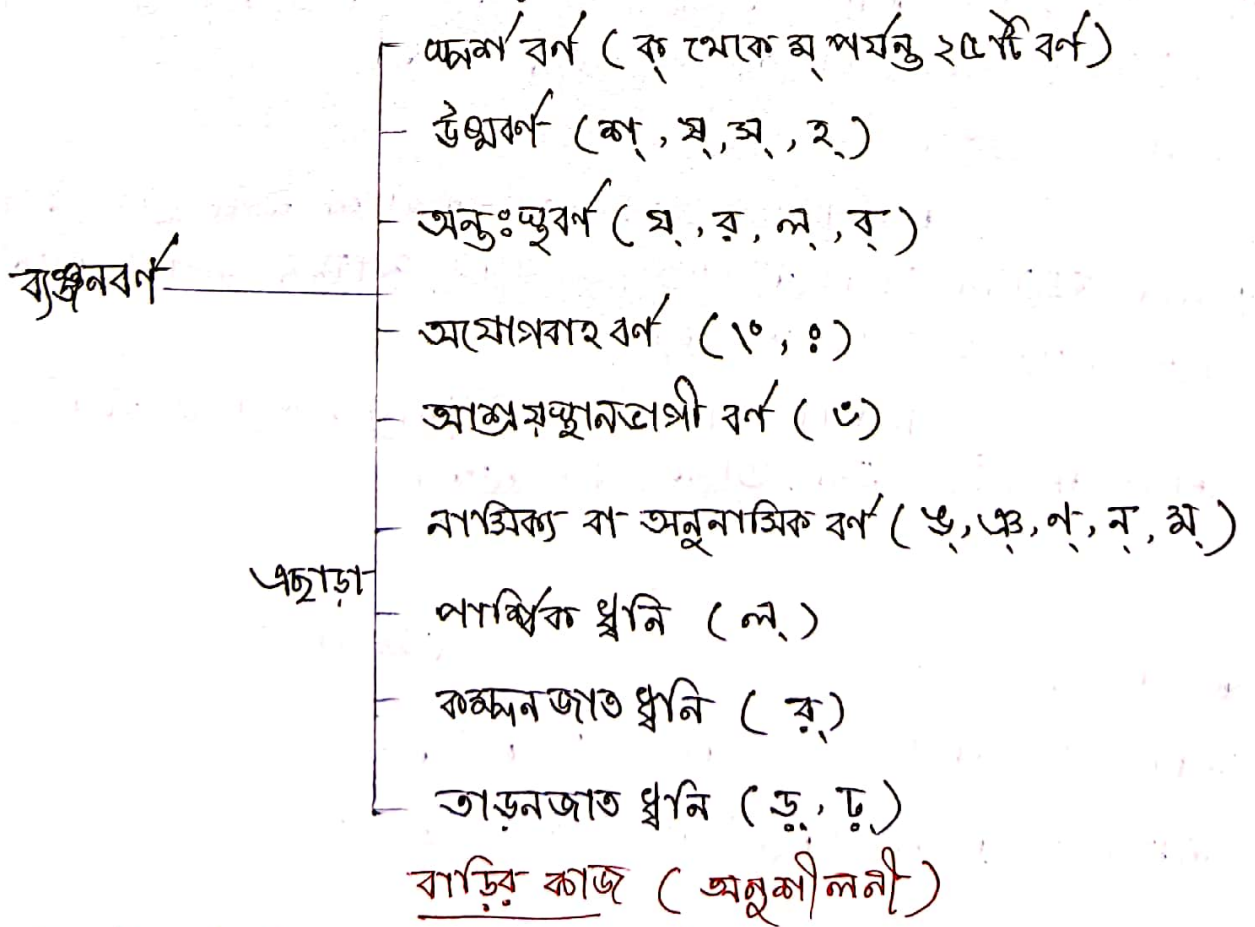 স্পর্শ বর্ণ ( ক্ থেকে ম্ পর্যন্ত ২৫ টি বর্ণ )
উষ্মবর্ণ ( শ্, ষ্, স্, হ্ )
অন্তঃস্থবর্ণ ( য্, র, ল্, ব্ )
ব্যঞ্জনবর্ণ
অযোগবাহ বর্ণ ( ং, ঃ )
আশ্রয়স্থানভাগী বর্ণ ( ঁ )
নাসিক্য বা অনুনাসিক বর্ণ ( ঙ্, ঞ্, ণ্, ন্, ম্ )
এছাড়া
পার্শ্বিক ধ্বনি ( ল্ )
কম্পনজাত ধ্বনি ( র্ )
তাড়নজাত ধ্বনি ( ড়্, ঢ়্ )
বাড়ির কাজ ( অনুশীলনী )